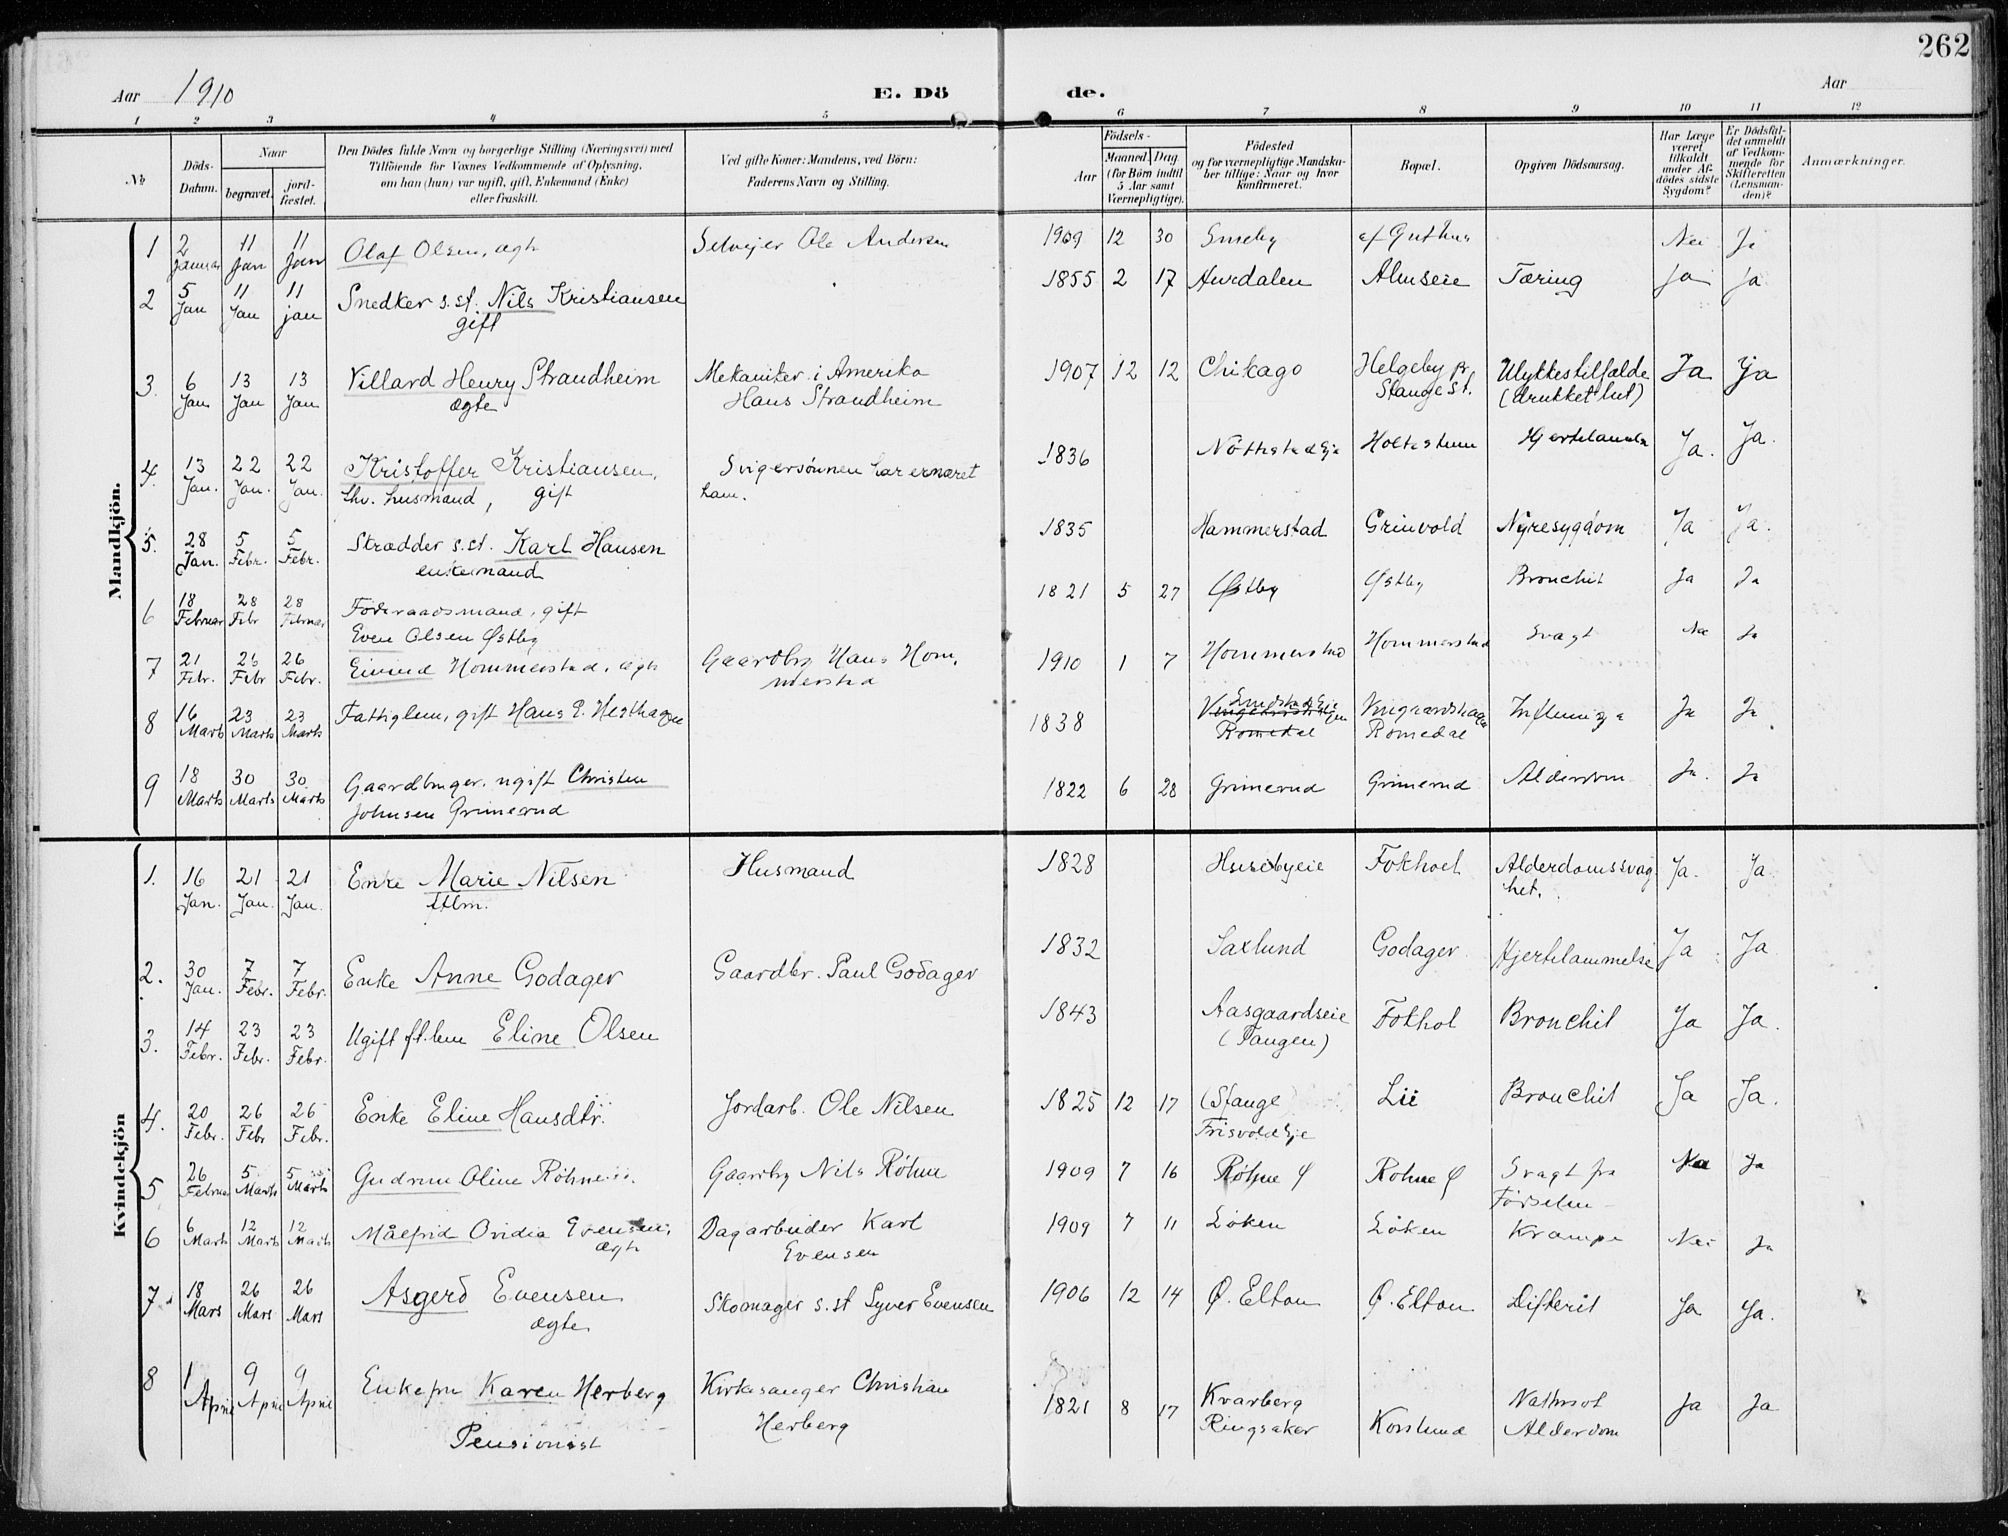 262
Aar 1910
E. Dö de.
Aar
1 2 3 4 5 6 7 8 9 10 11 12
№
Döds-Datum.
Naar
begravet.
jord-fæstet.
Den Dödes fulde Navn og borgerlige Stilling (Næringsvei) med
Tilföiende for Voxnes Vedkommende af Oplysning,
om han (hun) var ugift, gift, Enkemand (Enke)
eller fraskilt.
Ved gifte Koner: Mandens, ved Börn:
Faderens Navn og Stilling.
Födsels-
Aar
Maaned. Dag
(for Börn indtil
5 Aar samt
Værnepligtige).
Födested
og for værnepligtige Mandska-
ber tillige: Naar og hvor
konfirmeret.
Bopæl.
Opgiven Dödsaarsag.
Har Læge
været
tilkaldt
under Af-
dödes sidste
Sygdom?
Er Dödsfal-
det anmeldt
af Vedkom-
mende for
Skifteretten
(Lensman-
den)?
Anmærkninger.
Mandkjön.
1 2 Januar 11 Jan 11 Jan Olaf Olsen, ægte Selvejer Ole Andersen 1909 12 30 Guthus Nei Ja
2 5 Jan 11 Jan 11 jan Snedker s.st. Nils Kristiansen 1855 2 17 Hurdalen Almseie Tæring Ja Ja
gift
3. 6 Jan 13 Jan 13 Jan Villard Henry Strandheim Mekaniker i Amerika 1907 12 12 Chikago Helgeby pr. Ulykkestilfælde Ja Ja
ægte Hans Strandheim Stange St. (drukket lut)
4. 13 Jan. 22 Jan. 22 Jan. Kristoffer Kristiansen, Svigersønnen har ernæret 1836 Ja. Ja.
fhv. husmand, gift ham.
5. 28 Jan. 5 Febr. 5 Febr. Strædder s.st. Karl Hansen 1835 Hammerstad Grinvold Nyresygdom Ja Ja.
enkemand
6 18 Februar 28 Febr 28 Februar Föderaadsmand, gift 1821 5 27 Østby Østby Bronchit Ja Ja
Even Olsen Østby
7 21 Febr. 26 Febr 26 Febr. Eivind Hommerstad, ægte Gaardbr Hans Hom, 1910 1 7 Hommerstad Hommerstad Svagt Nei Ja
merstad
8 16 Marts 23 Marts 23 Marts Fattiglem, gift Hans E. Hesthagen 1838 Vingaardshagen Influenza Ja Ja
Romedal Romedal
9 18 Marts 30 Marts 30. Marts Gaardbruger, ugift Christen 1822 6 28 Grimerud Grimerud Alderdom Ja. Ja
Johnsen Grimerud
Kvindekjön
1. 16 Jan. 21 Jan. 21 Jan. Enke Marie Nilsen Husmand 1828 Husebyeie Fokhoel Alderdomssvag Ja. Ja.
het.
2. 30 Jan. 7 Febr. 7 Febr. Enke Anne Godager Gaardbr. Paul Godager 1832 Saxlund Godager Hjertelammelse Ja Ja
3. 14 Febr. 23 Febr. 23 Febr. Ugift Eline Olsen 1843 Aasgaardseie Fokhol Bronchit Ja Ja.
(Tangen)
4. 20 Febr. 26 Febr 26 Febr. Enke Eline Hansdtr. Jordarb. Ole Nilsen 1825 12 17 (Stange Lie Bronchit Ja Ja.
Frisvoldeje
5 26 Februar 5 Marts 5 Marts Gudrun Oline Röhne Gaardbr Nils Röhne 1909 7 16 Röhne Ø Rohne Ø Svagt fra Nei Ja
Førselen
6 6 Marts 12 Marts 12 Marts Målfrid Ovidia Evensen, Dagarbeider Karl 1909 7 11 Løken Løken Krampe Nei Ja
ægte Evensen
7. 18 Mars 26 Mars 26 Mars Asgerd Evensen Skomager s.st Syver Evensen 1906 12 14 Ø. Elton Ø. Elton Difterit Ja Ja.
ægte
8 1 April 9 April 9 April Enkefru Karen Herberg Kirkesanger Christian 1821 8 17 Kvarberg Ja Ja
Pensionist Herberg Ringsaker Korslund Alderdom